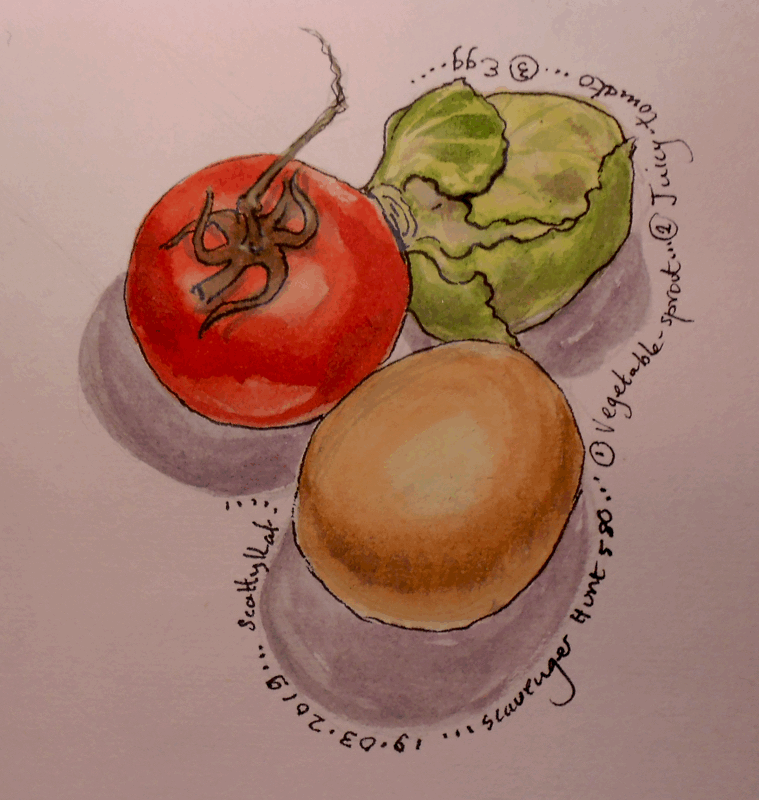 ScattyKat... 19.03.2019... Scavenger Hunt 580... ① Vegetable-sprout... ② Juicy tomato ... ③ Egg .....